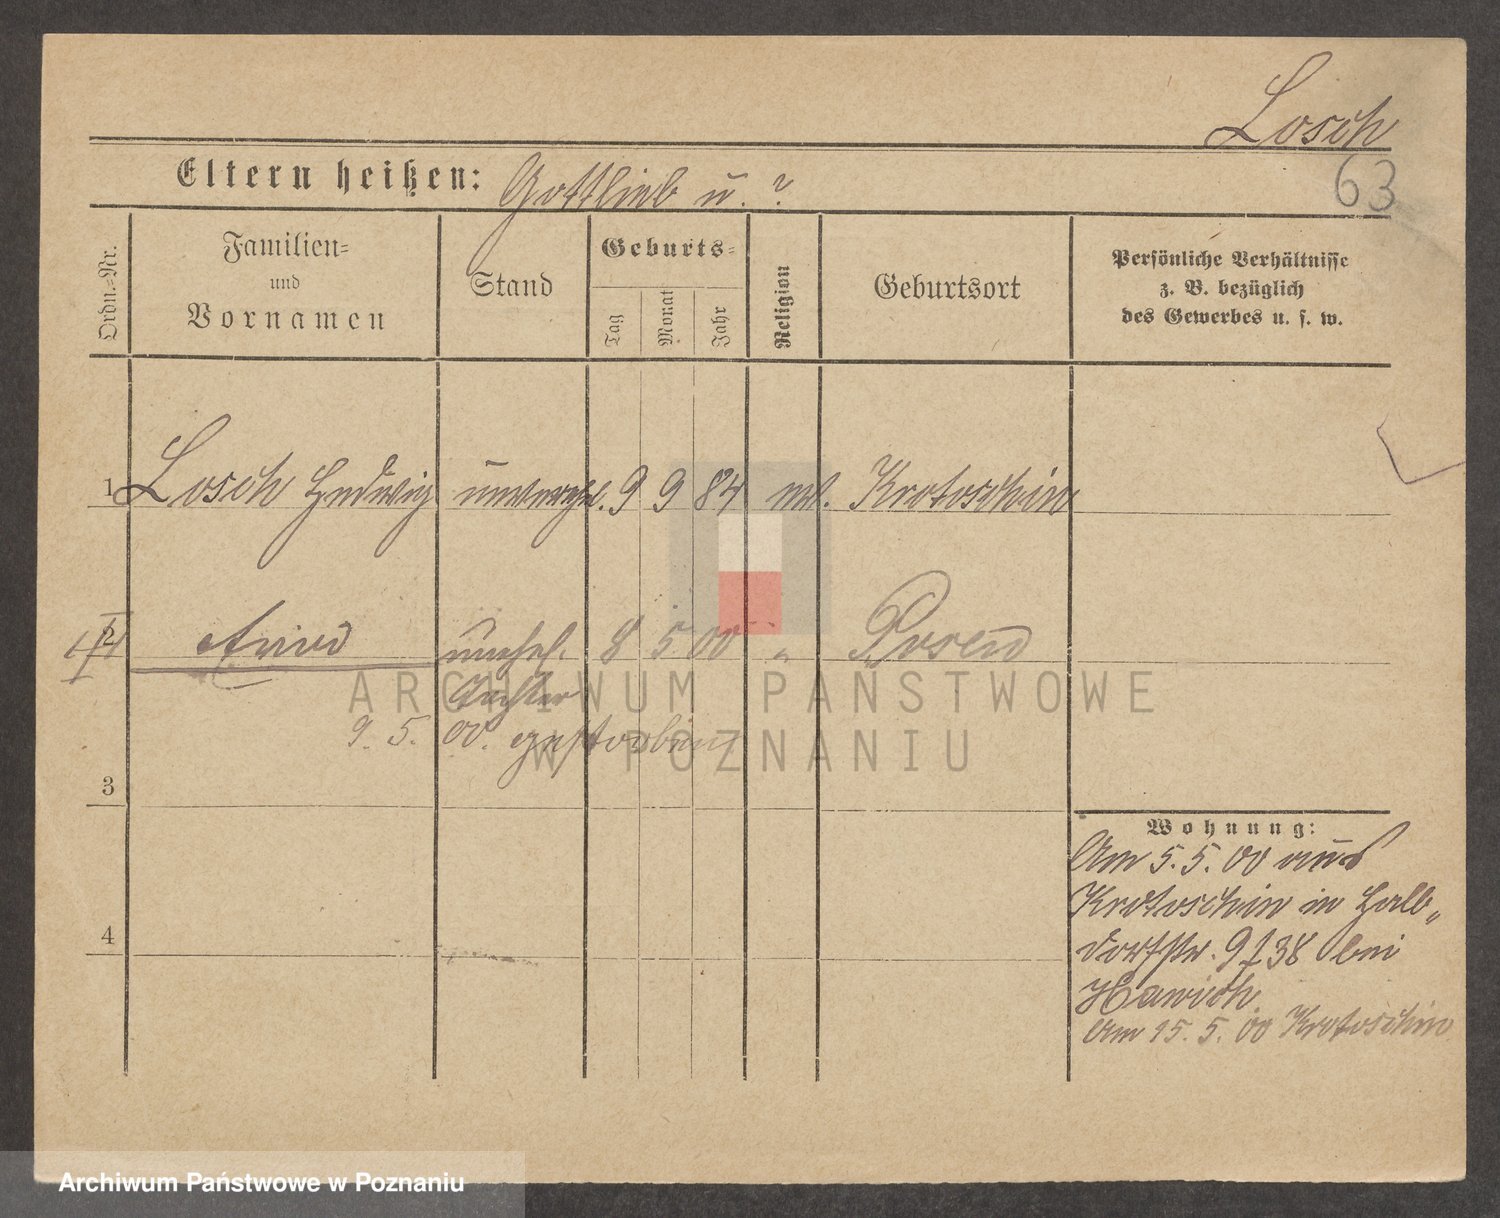 Losch
63
Eltern heißen: Gottlieb u. ?
Ordn.-Nr.
Familien-
und
Vornamen
Stand
Geburts-
Tag
Monat
Jahr
Religion
Geburtsort
Persönliche Verhältnisse
z. B. bezüglich
des Gewerbes u. s. w.
1 Losch Hedwig unverehl. 9 9 84 ev. Krotoschin
2 unehel. 8 5 00 " Posen
Tochter
9. 5. 00. gestorben
3
4
Wohnung:
Am 5. 5. 00 aus
Krotoschin in Halb„
dorfstr. 9/38 bei
Am 15. 5. 00 Krotoschin
ARCHIWUM PAŃSTWOWE
W POZNANIU
Archiwum Państwowe w Poznaniu